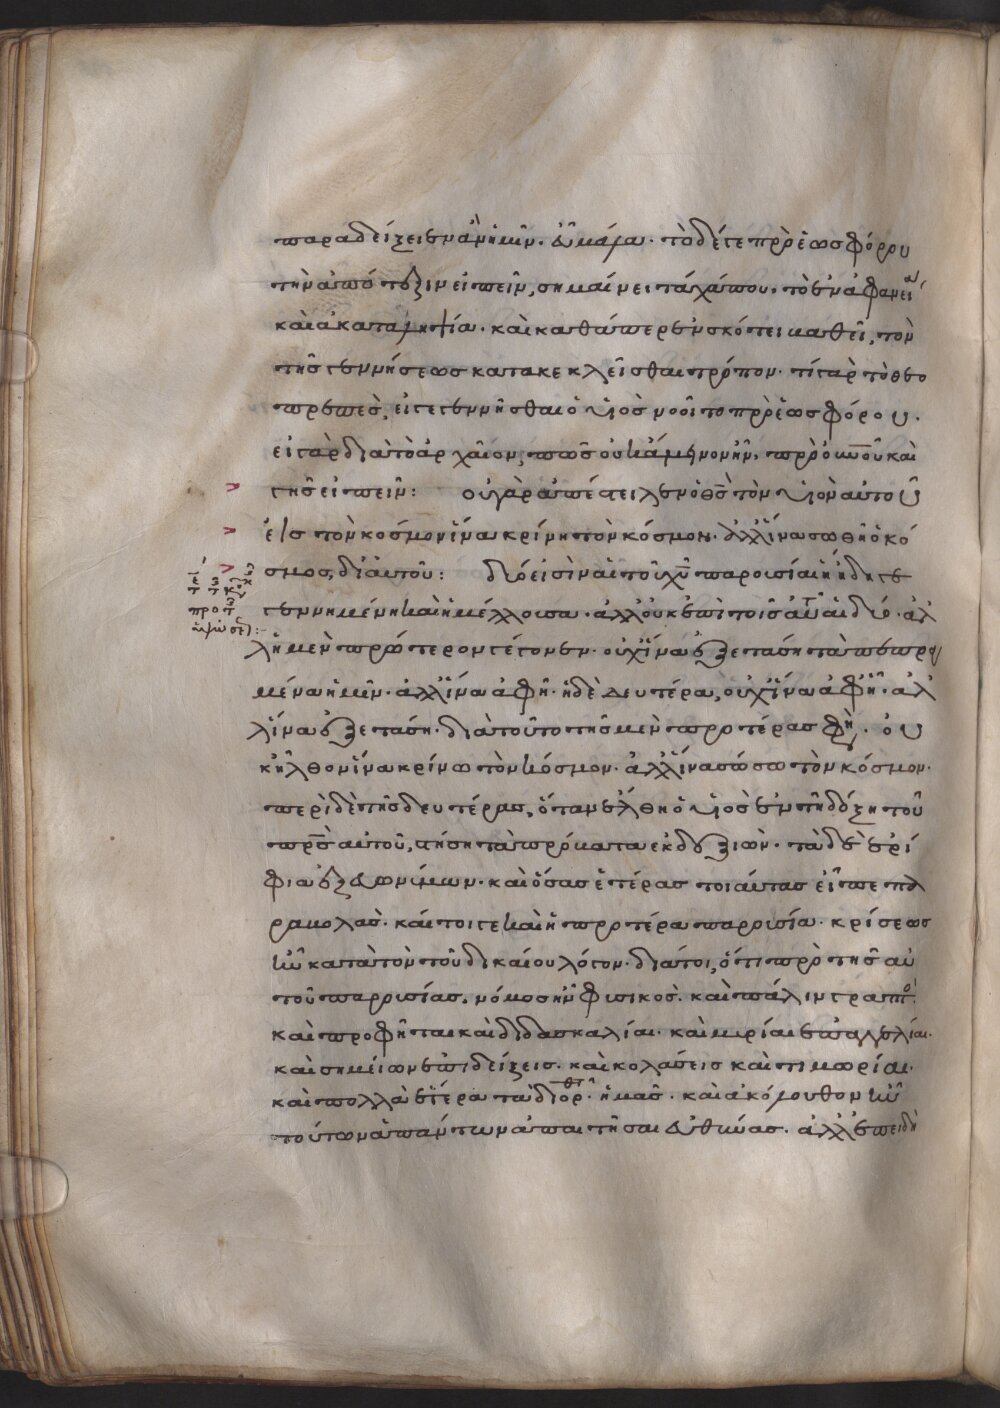 παραδείξειεν ἂν ἡμῖν. ὦ μάγοι. τὸ δέ γε πρὸ ἑωσφόρου
τὴν ἀπότεξιν εἰπεῖν, σημαίνει τάχα που. τὸ ἐν ἀφανεί
καὶ ἀκαταληψία. καὶ καθάπερ ἐν σκότει παθεῖν, τὸν
τῆς γεννήσεως κατακεκλεῖσθαι τρόπον. τί γὰρ τὸ θεο
πρεπὲς, εἰ γεγεννῆσθαι ὁ υἱὸς νοοῖτο πρὸ ἑωσφόρου.
εἰ γὰρ διὰ τὸ ἀρχαῖον, πῶς οὐκ ἄμεινον ἦν, πρὸ οὐνοῦ καὶ
γῆς εἰπεῖν: οὐ γὰρ ἀπέστειλεν ὁ θς τὸν υἱὸν αὐτοῦ
εἰς τὸν κόσμον ἵνα κρίνῃ τὸν κόσμον. ἀλλ' ἵνα σωθῇ ὁ κό
σμος, δι' αὐτοῦ: δύο εἰσὶν αἱ τοῦ χυ παρουσίαι ἡ ἤδη γε
γεννημένη καὶ ἡ μέλλουσα. ἀλλ' οὐκ ἐπὶ τοῖς αὐτ αἱ δύο. ἀλ
λ' ἡ μὲν πρώτερον γέγονεν. οὐχ ἵνα ἐξετάσῃ τὰ πεπρα
μένα ἡμῖν. ἀλλ' ἵνα ἀφῇ. ἡ δὲ δευτέρα, οὐχ ἵνα ἀφῇ. ἀλ
λ' ἵνα ἐξετάσῃ. διὰ τοῦτο τῆς μὲν προτέρας φη. οὐ
κ ἦλθον ἵνα κρίνω τὸν κόσμον. ἀλλ' ἵνα σώσω τὸν κόσμον.
περὶ δὲ τῆς δευτέρας, ὅταν ἔλθῃ ὁ υἱὸς ἐν τῇ δόξῃ τοῦ
πρς αὐτοῦ, στήσῃ τὰ πρόβατα ἐκ δεξιῶν. τὰ δὲ ἐρί
φια ἐξ εὐωνύμων. καὶ ὅσας ἑτέρας τοιαύτας εἶπε πα
ραβολάς. καίτοι γε καὶ ἡ προτέρα παρουσία. κρίσεως
ἦν κατὰ τὸν τοῦ δικαίου λόγον. διάτοι, ὅτι πρὸ τῆς αὐ
τοῦ παρουσίας. νόμος ἦν φυσικός. καὶ πάλιν γραπτό.
καὶ προφῆται καὶ διδασκαλίαι. καὶ μυρίαι ἐπαγγελίαι.
καὶ σημείων ἐπιδείξεις. καὶ κολάσεις καὶ τιμωρίαι.
καὶ πολλὰ ἕτερα τὰ διορθ ἡμᾶς. καὶ ἀκόλουθον ἦν
τούτων ἁπάντων ἀπαιτῆσαι εὐθύνας. ἀλλ' ἐπειδὴ